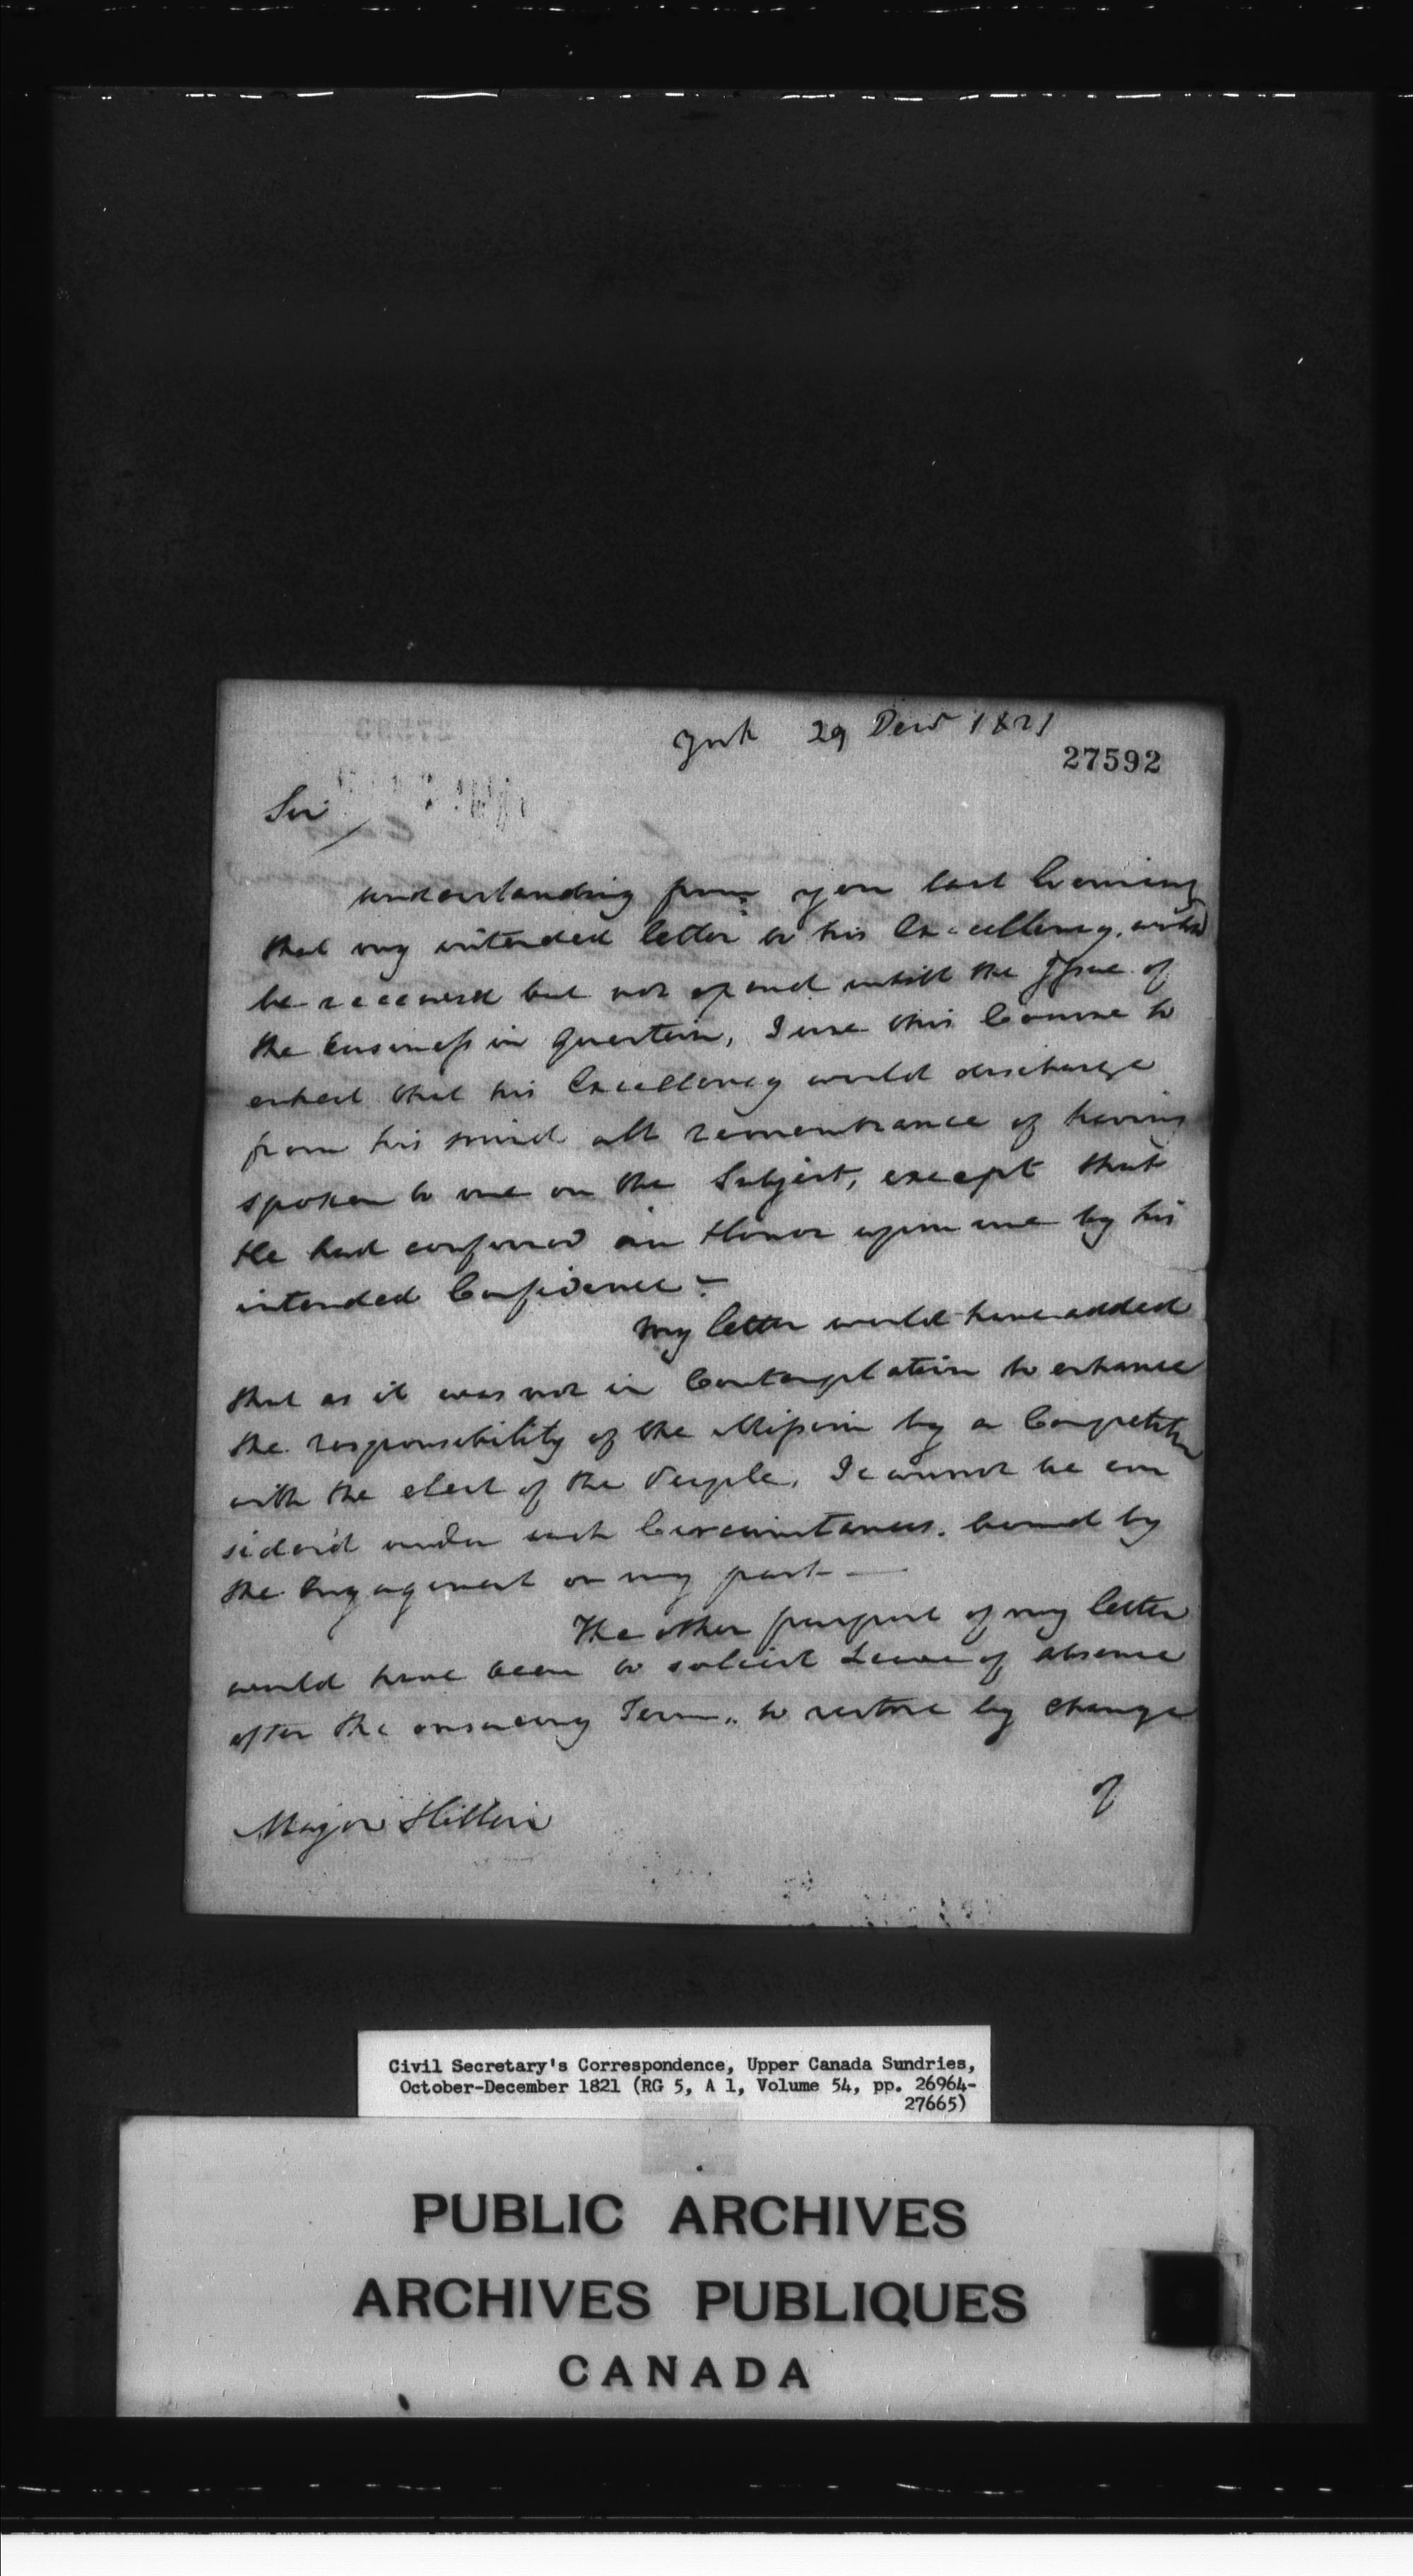 York 29 Decr 1821
27592
Sir
understanding from you last Evening
that my intended letter to his Excellency. would
be received but not opend untill the Issue of
the business in Question, I use this Course to
entreat that his Excellency would discharge
from his mind all remembrance of having
spoken to me on the Subject, except that
He had conferred an Honor upon me by his
intended Confidence -
My letter would have added
that as it was not in Contemplation to enhance
the responsibility of the Mission by a Competition
with the elect of the People, I cannot be con
siderd under such Circumstances. bound by
the Engagement on my part -
The other purport of my letter
would have been to solicit Leave of absence
after the ensueing Term, to restore by change
of
Major Hillier
Civil Secretary's Correspondence, Upper Canada Sundries,
October-December 1821 (RG 5, A 1, Volume 54, pp. 26964-
27665)
PUBLIC ARCHIVES
ARCHIVES PUBLIQUES
CANADA